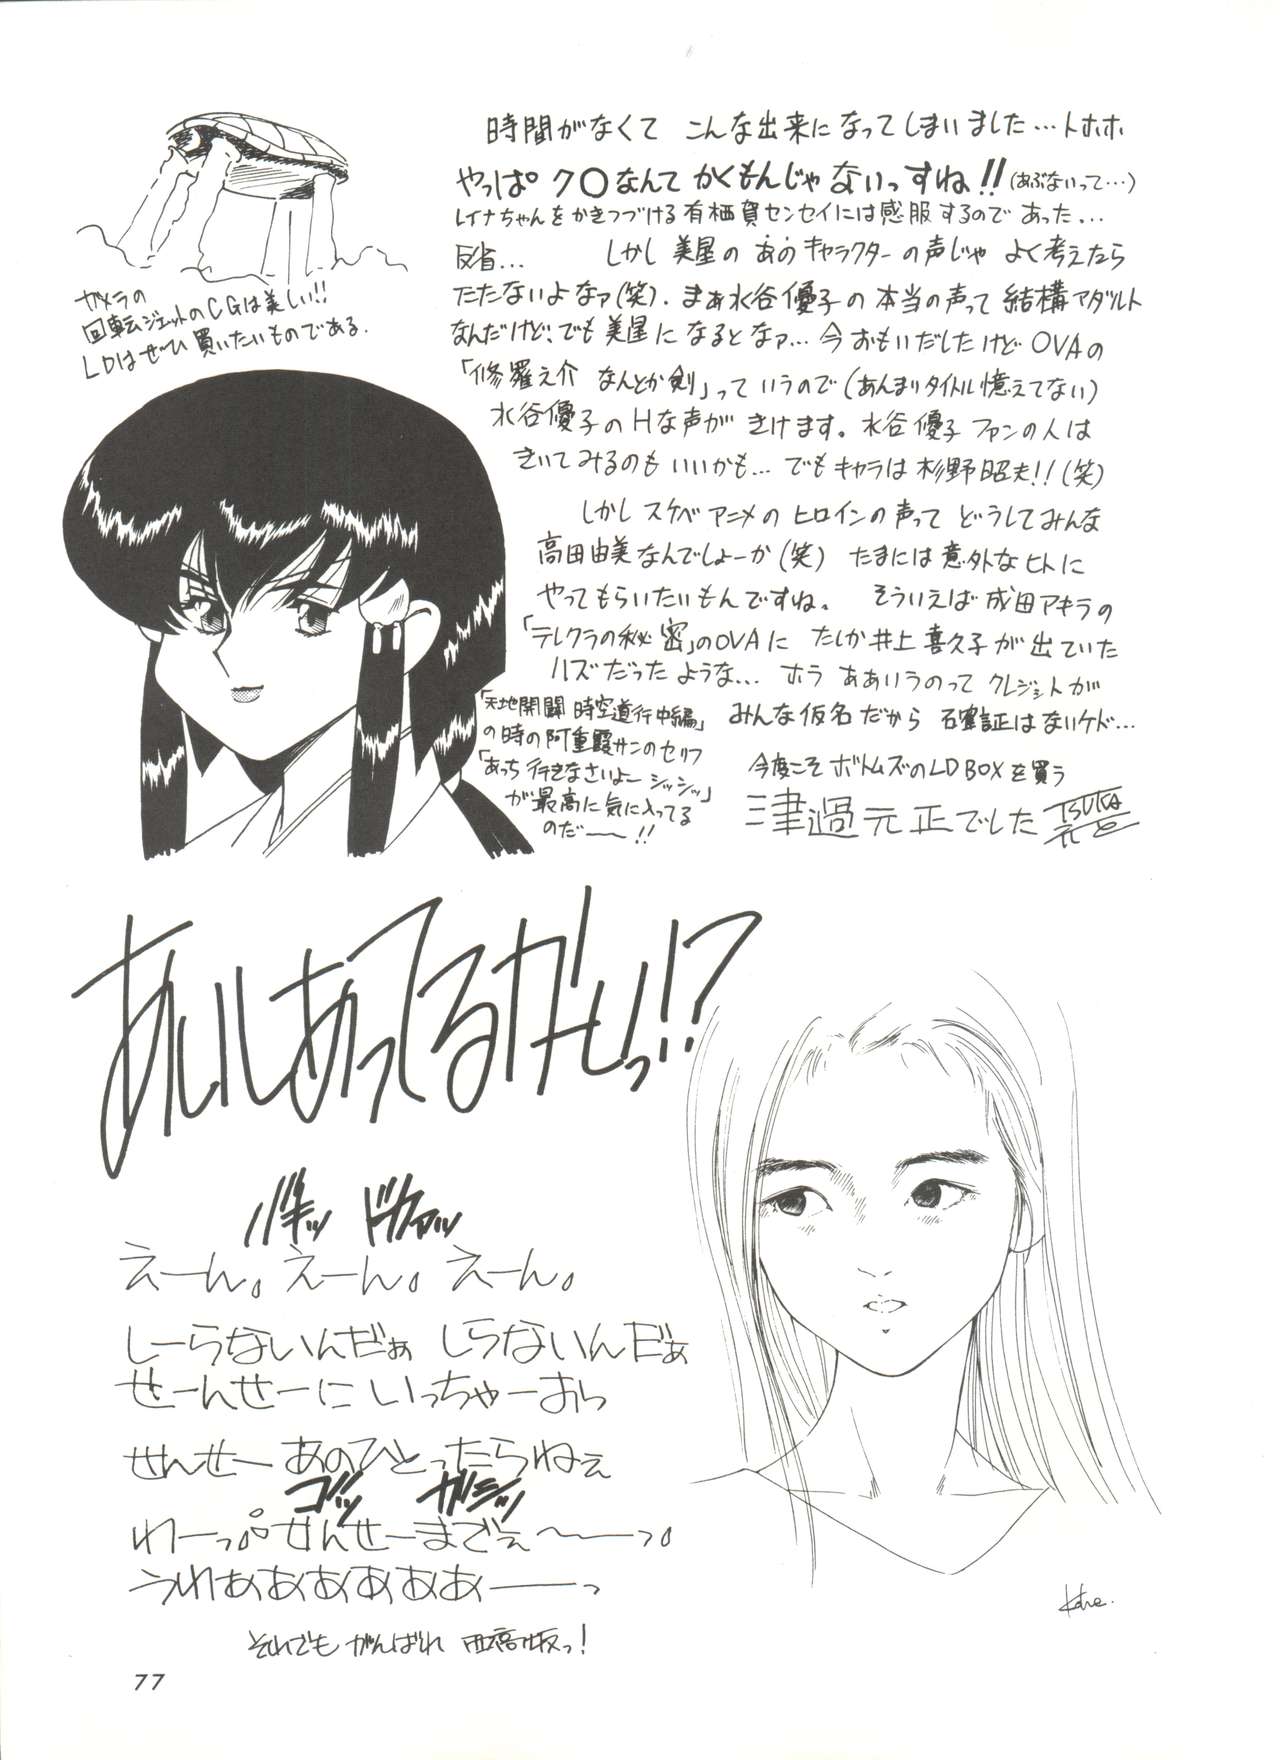 時間がなくて こんな出来になってしまいました…トホホ
やっぱ ク〇なんて かくもんじゃ ないっすね!!(あぶないって…)
レイナちゃんを かきつづける 有栖賀センセイには感服するのであった…
反省… しかし 美星の あのキャラクターの声じゃ よく考えたら
たたないよなァ(笑). まぁ水谷優子の本当の声って 結構アダルト
なんだけど、でも美星になるとなァ…今おもいだしたけどOVAの
「修羅之介 なんとか剣」っていうので(あんまりタイトル憶えてない)
水谷優子のHな声が きけます。水谷優子ファンの人は
きいてみるのもいいかも… でもキャラは杉野昭夫!!(笑)
しかし スケベアニメの ヒロインの声って どうしてみんな
高田由美なんでしょーか(笑) たまには意外なヒトに
やってもらいたいもんですね。 そういえば成田アキラの
「テレクラの秘密」のOVAに たしか井上喜久子が出ていた
ハズだったような… ホラ ああいうのって クレジットが
みんな仮名だから 確証はないケド…
今度こそ ボトムズのLD BOXを買う
津過元正でした TSUKA
ガメラの
回転ジェットのCGは美しい!!
LDはぜひ買いたいものである.
「天地開闢 時空道行中編」
の時の阿重霞サンのセリフ
「あっち行きなさいよー シッシッ」
が最高に気に入ってる
のだー!!
あいしあってるかーいっ!?
バキッ ドカァッ
えーん。えーん。えーん。
しーらないんだぁ しらないんだぁ
せーんせーに いっちゃーおぅ
せんせー あのひとったらねぇ
ゴッ ガシッ
わーっ せんせーまでぇ〜ーっ。
うわぁあああああーーっ
それでも がんばれ 西高坂っ!
77